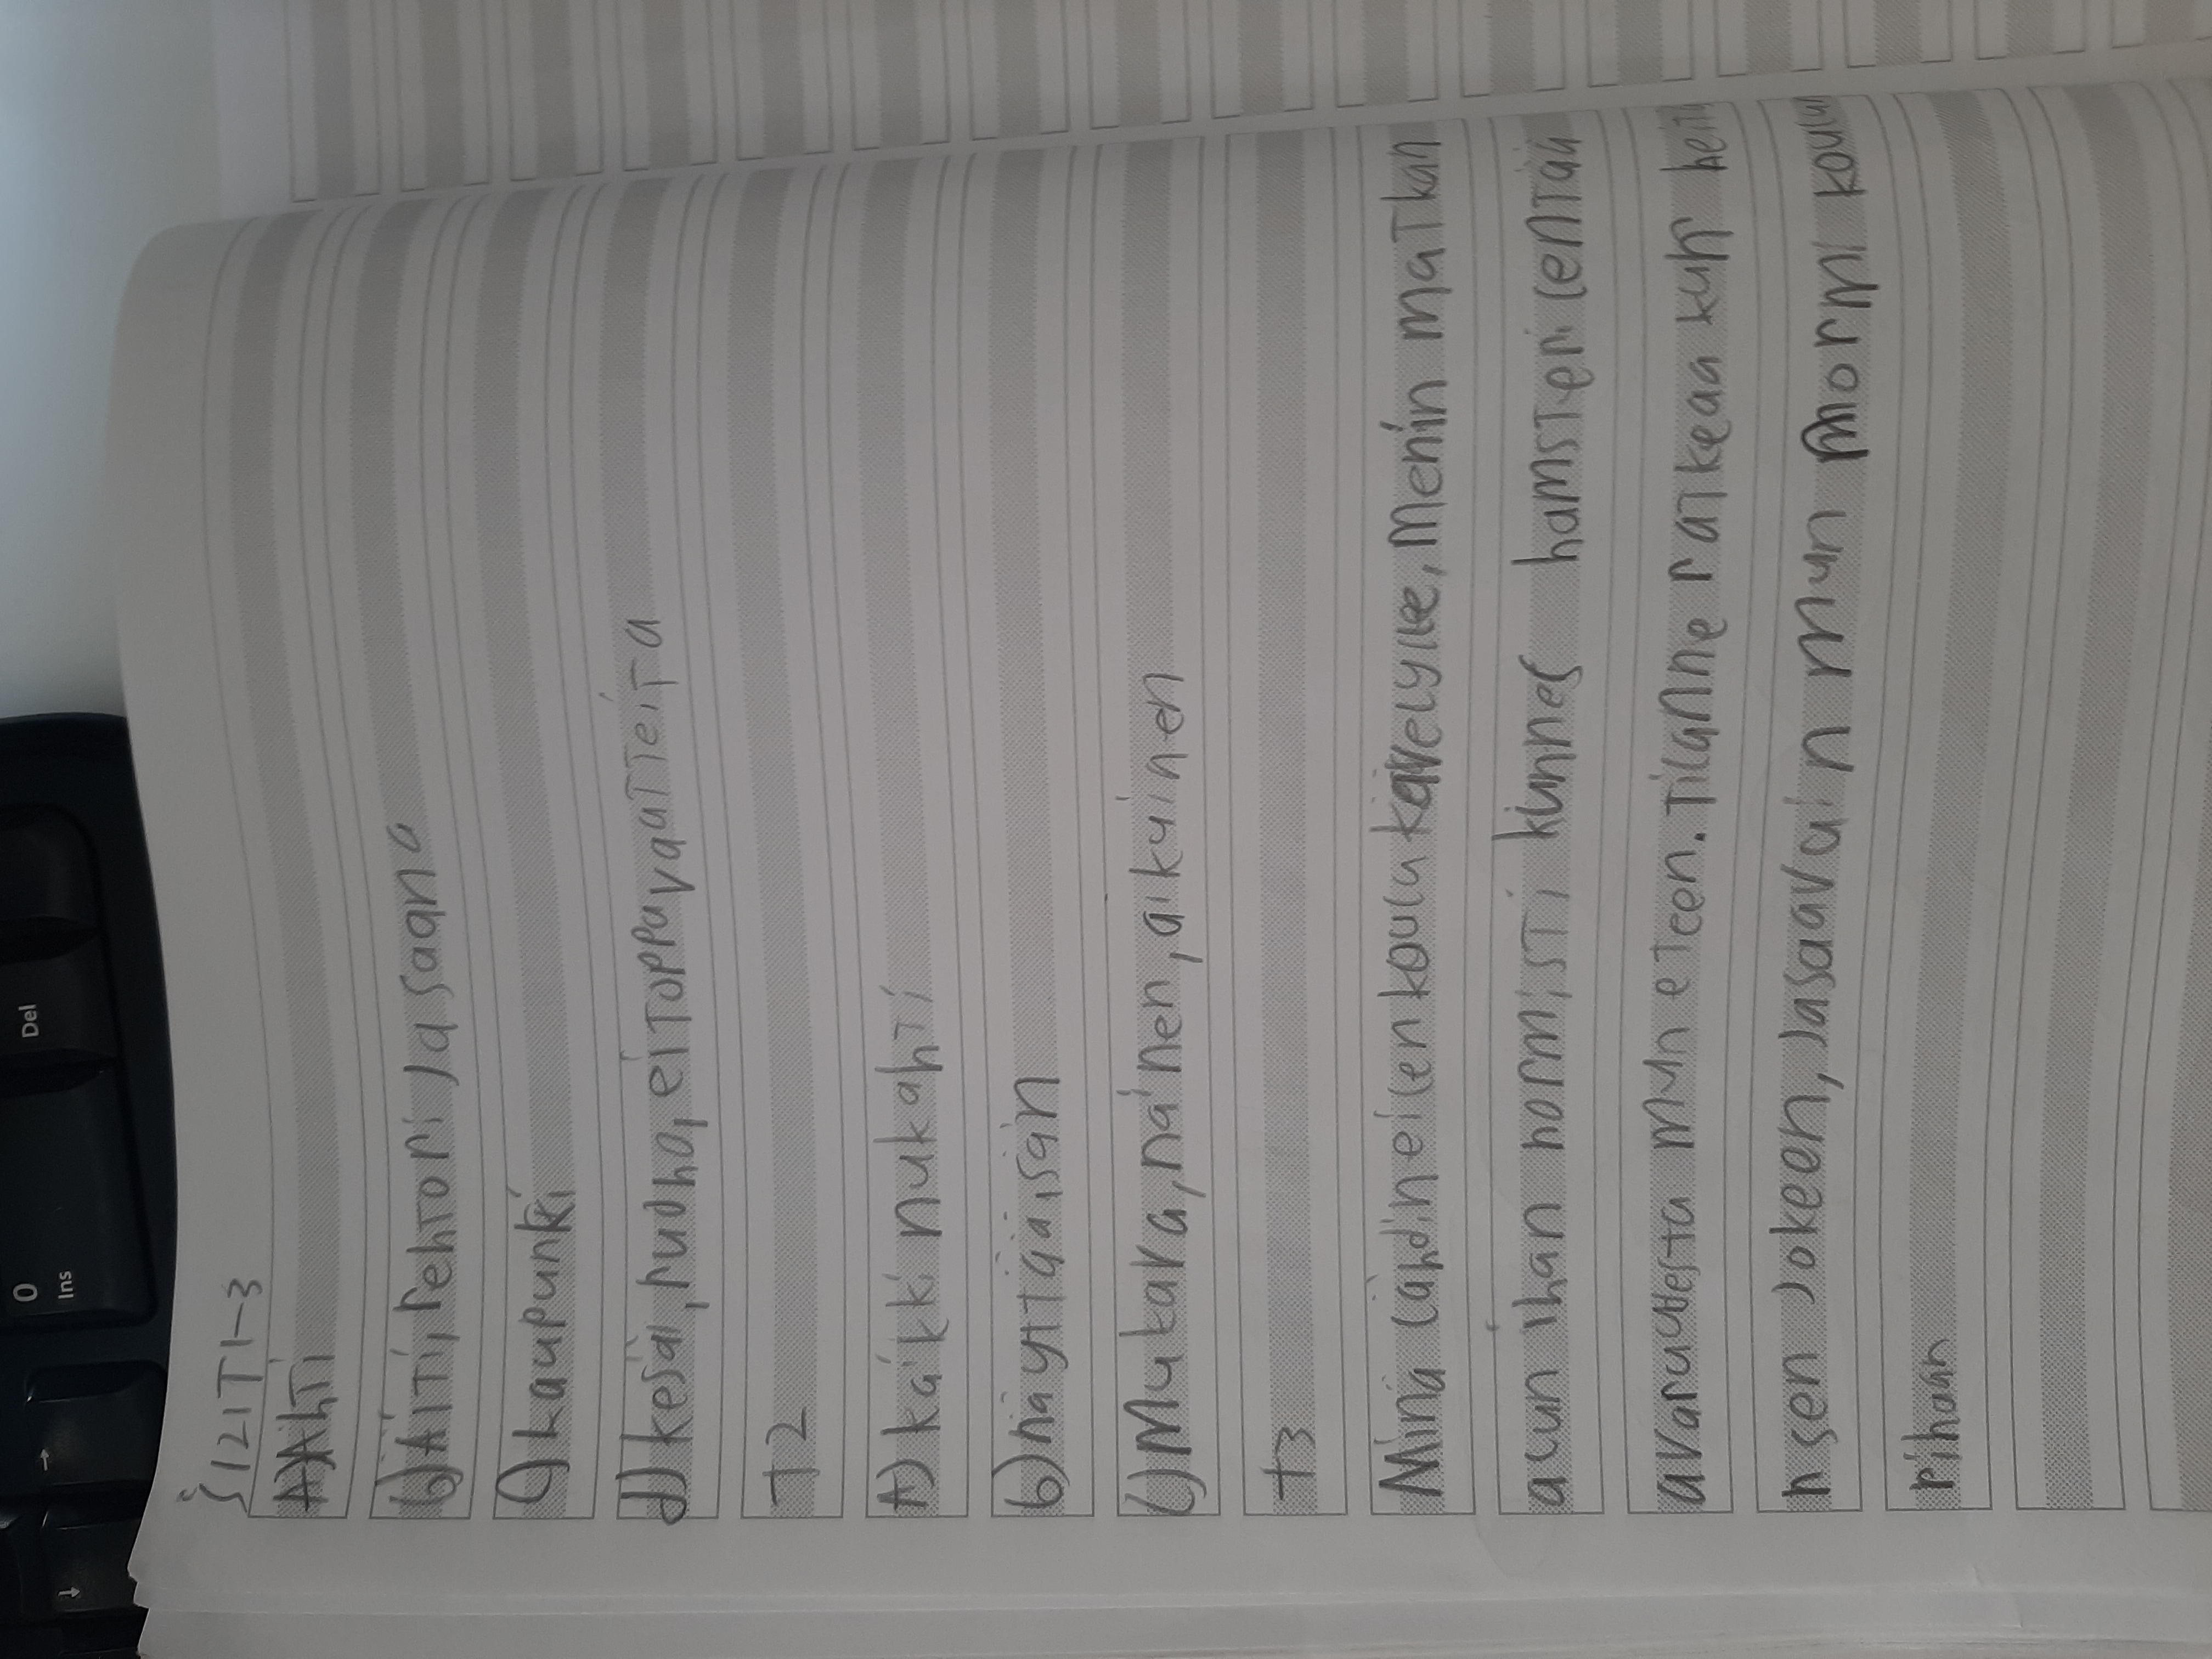 S12 T1-3
A) Ahti
b) Äiti, rehtori ja saana
C) kaupunki
d) kesä, ruoho, ei toppavaatteita
T2
A) käikki nukahti
b) näyttjäisän
C) Mukava, nainen, aikuinen
T3
Minä lähdin eilen koulukävelylle, Menin matkan
alun ihan normisti kunnes hamsteri lentää
avaruudesta mun eteen. Tilanne ratkeaa kuhr heitä
n sen jokeen, ja saavuin mun normi koulun
pihaan
0
Ins
Del